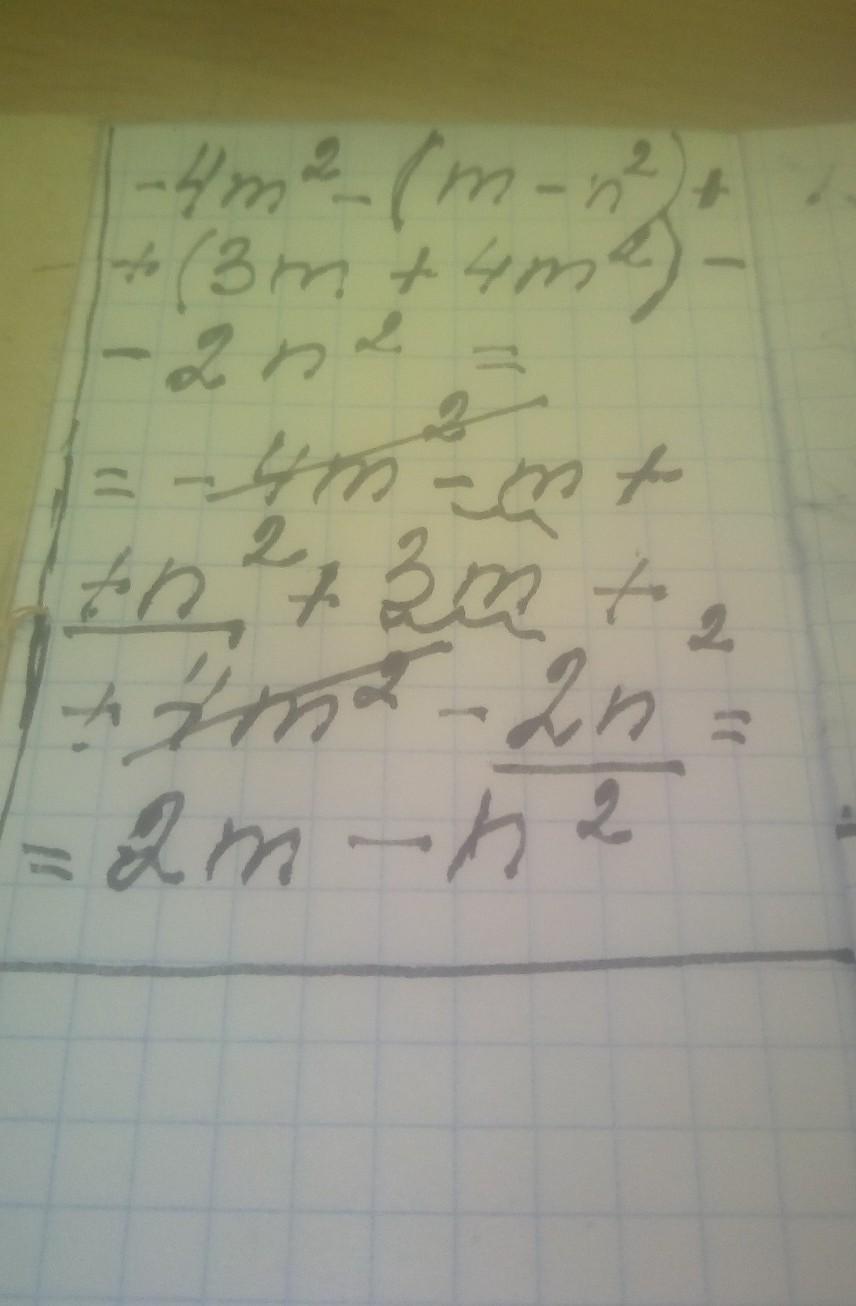 -4m² - (m - n²) +
+ (3m + 4m²) -
- 2n² =
= - 4m² - m +
+ n² + 3m +
+ 4m² - 2n² =
= 2m - n²